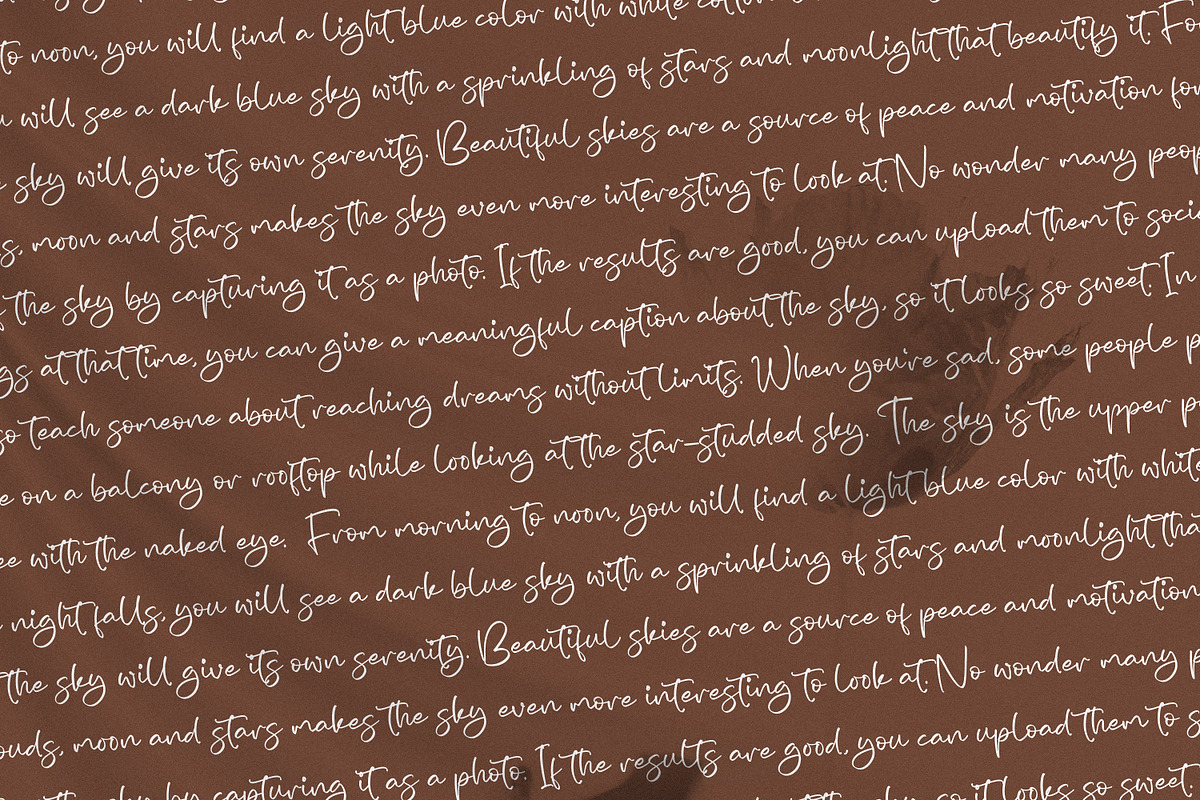 to noon, you will find a light blue color with white
will see a dark blue sky with a sprinkling of stars and moonlight that beautify it. Fo
sky will give its own serenity. Beautiful skies are a source of peace and motivation fo
s, moon and stars makes the sky even more interesting to look at. No wonder many peop
the sky by capturing it as a photo. If the results are good, you can upload them to soci
gs at that time, you can give a meaningful caption about the sky, so it looks so sweet. In
so teach someone about reaching dreams without limits. When you're sad, some people p
e on a balcony or rooftop while looking at the star-studded sky. The sky is the upper p
ee with the naked eye. From morning to noon, you will find a light blue color with whit
night falls, you will see a dark blue sky with a sprinkling of stars and moonlight tha
the sky will give its own serenity. Beautiful skies are a source of peace and motivation
ouds, moon and stars makes the sky even more interesting to look at. No wonder many p
sky by capturing it as a photo. If the results are good, you can upload them to s
sky, so it looks so sweet